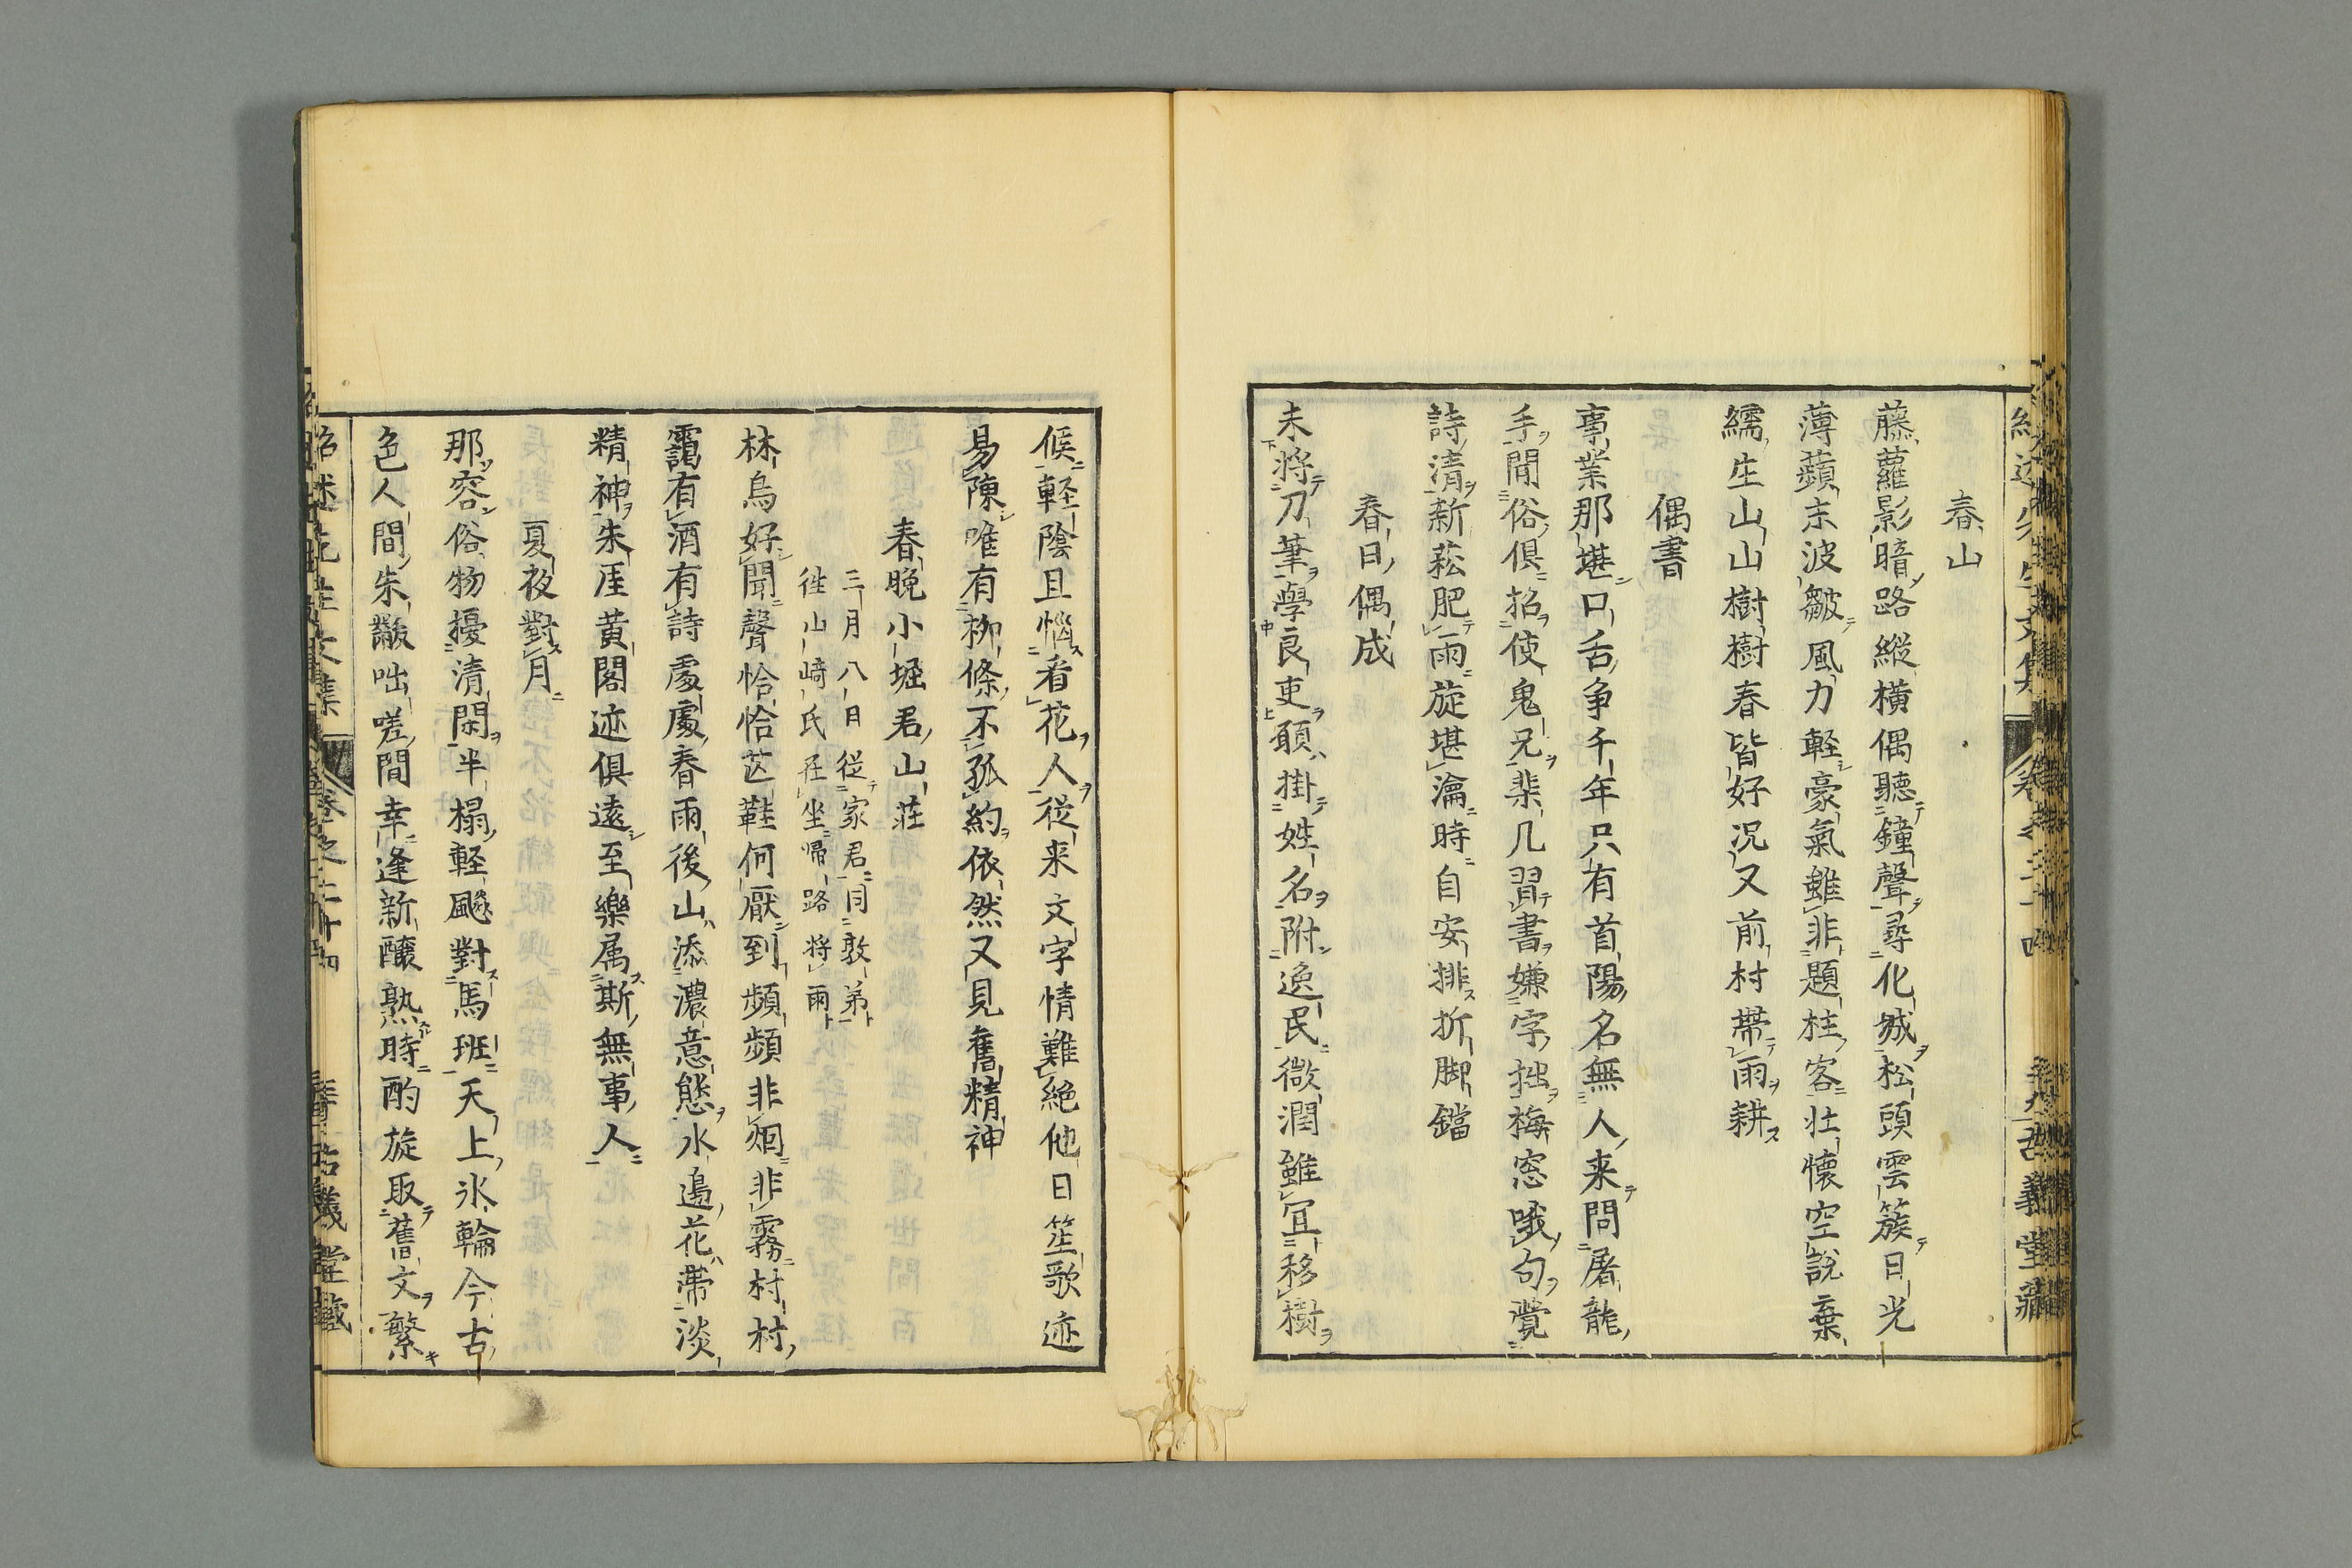 春山
藤蘿影暗路縱橫偶聽鐘聲尋化城松頭雲簇日光
薄蘋末波皺風力軽豪氣雖非題柱客壮懐空說棄
繻生山山樹樹春皆好况又前村帶雨耕
偶書
事業那堪口舌争千年只有首陽名無人来問屠龍
手閒俗俱招使鬼兄棐几習書嫌字拙梅窓哦句覺
詩清新菘肥雨旋堪瀹時自安排折脚鐺
春日偶成
未將刀筆學良吏頋掛姓名附逸民微潤雖冝移樹
候軽陰且惱看花人従来文字情難絶他日笙歌迹
易陳唯有柳條不孤約依然又見舊精神
春晩小堀君山荘
三月八日從家君同敦弟
徃山﨑氏在坐帰路將雨
林烏好聞聲恰恰芒鞋何厭到頻頻非烟非霧村村
靄有酒有詩處處春雨後山添濃意態水邉花帶淡
精神朱厓黄閣迹俱遠至樂属斯無事人
夏夜對月
那容俗物擾清閑半榻軽颸對馬班天上氷輪今古
色人間朱黻咄嗟間幸逢新釀熟時酌旋取舊文繁
卷之二十四
古義堂藏